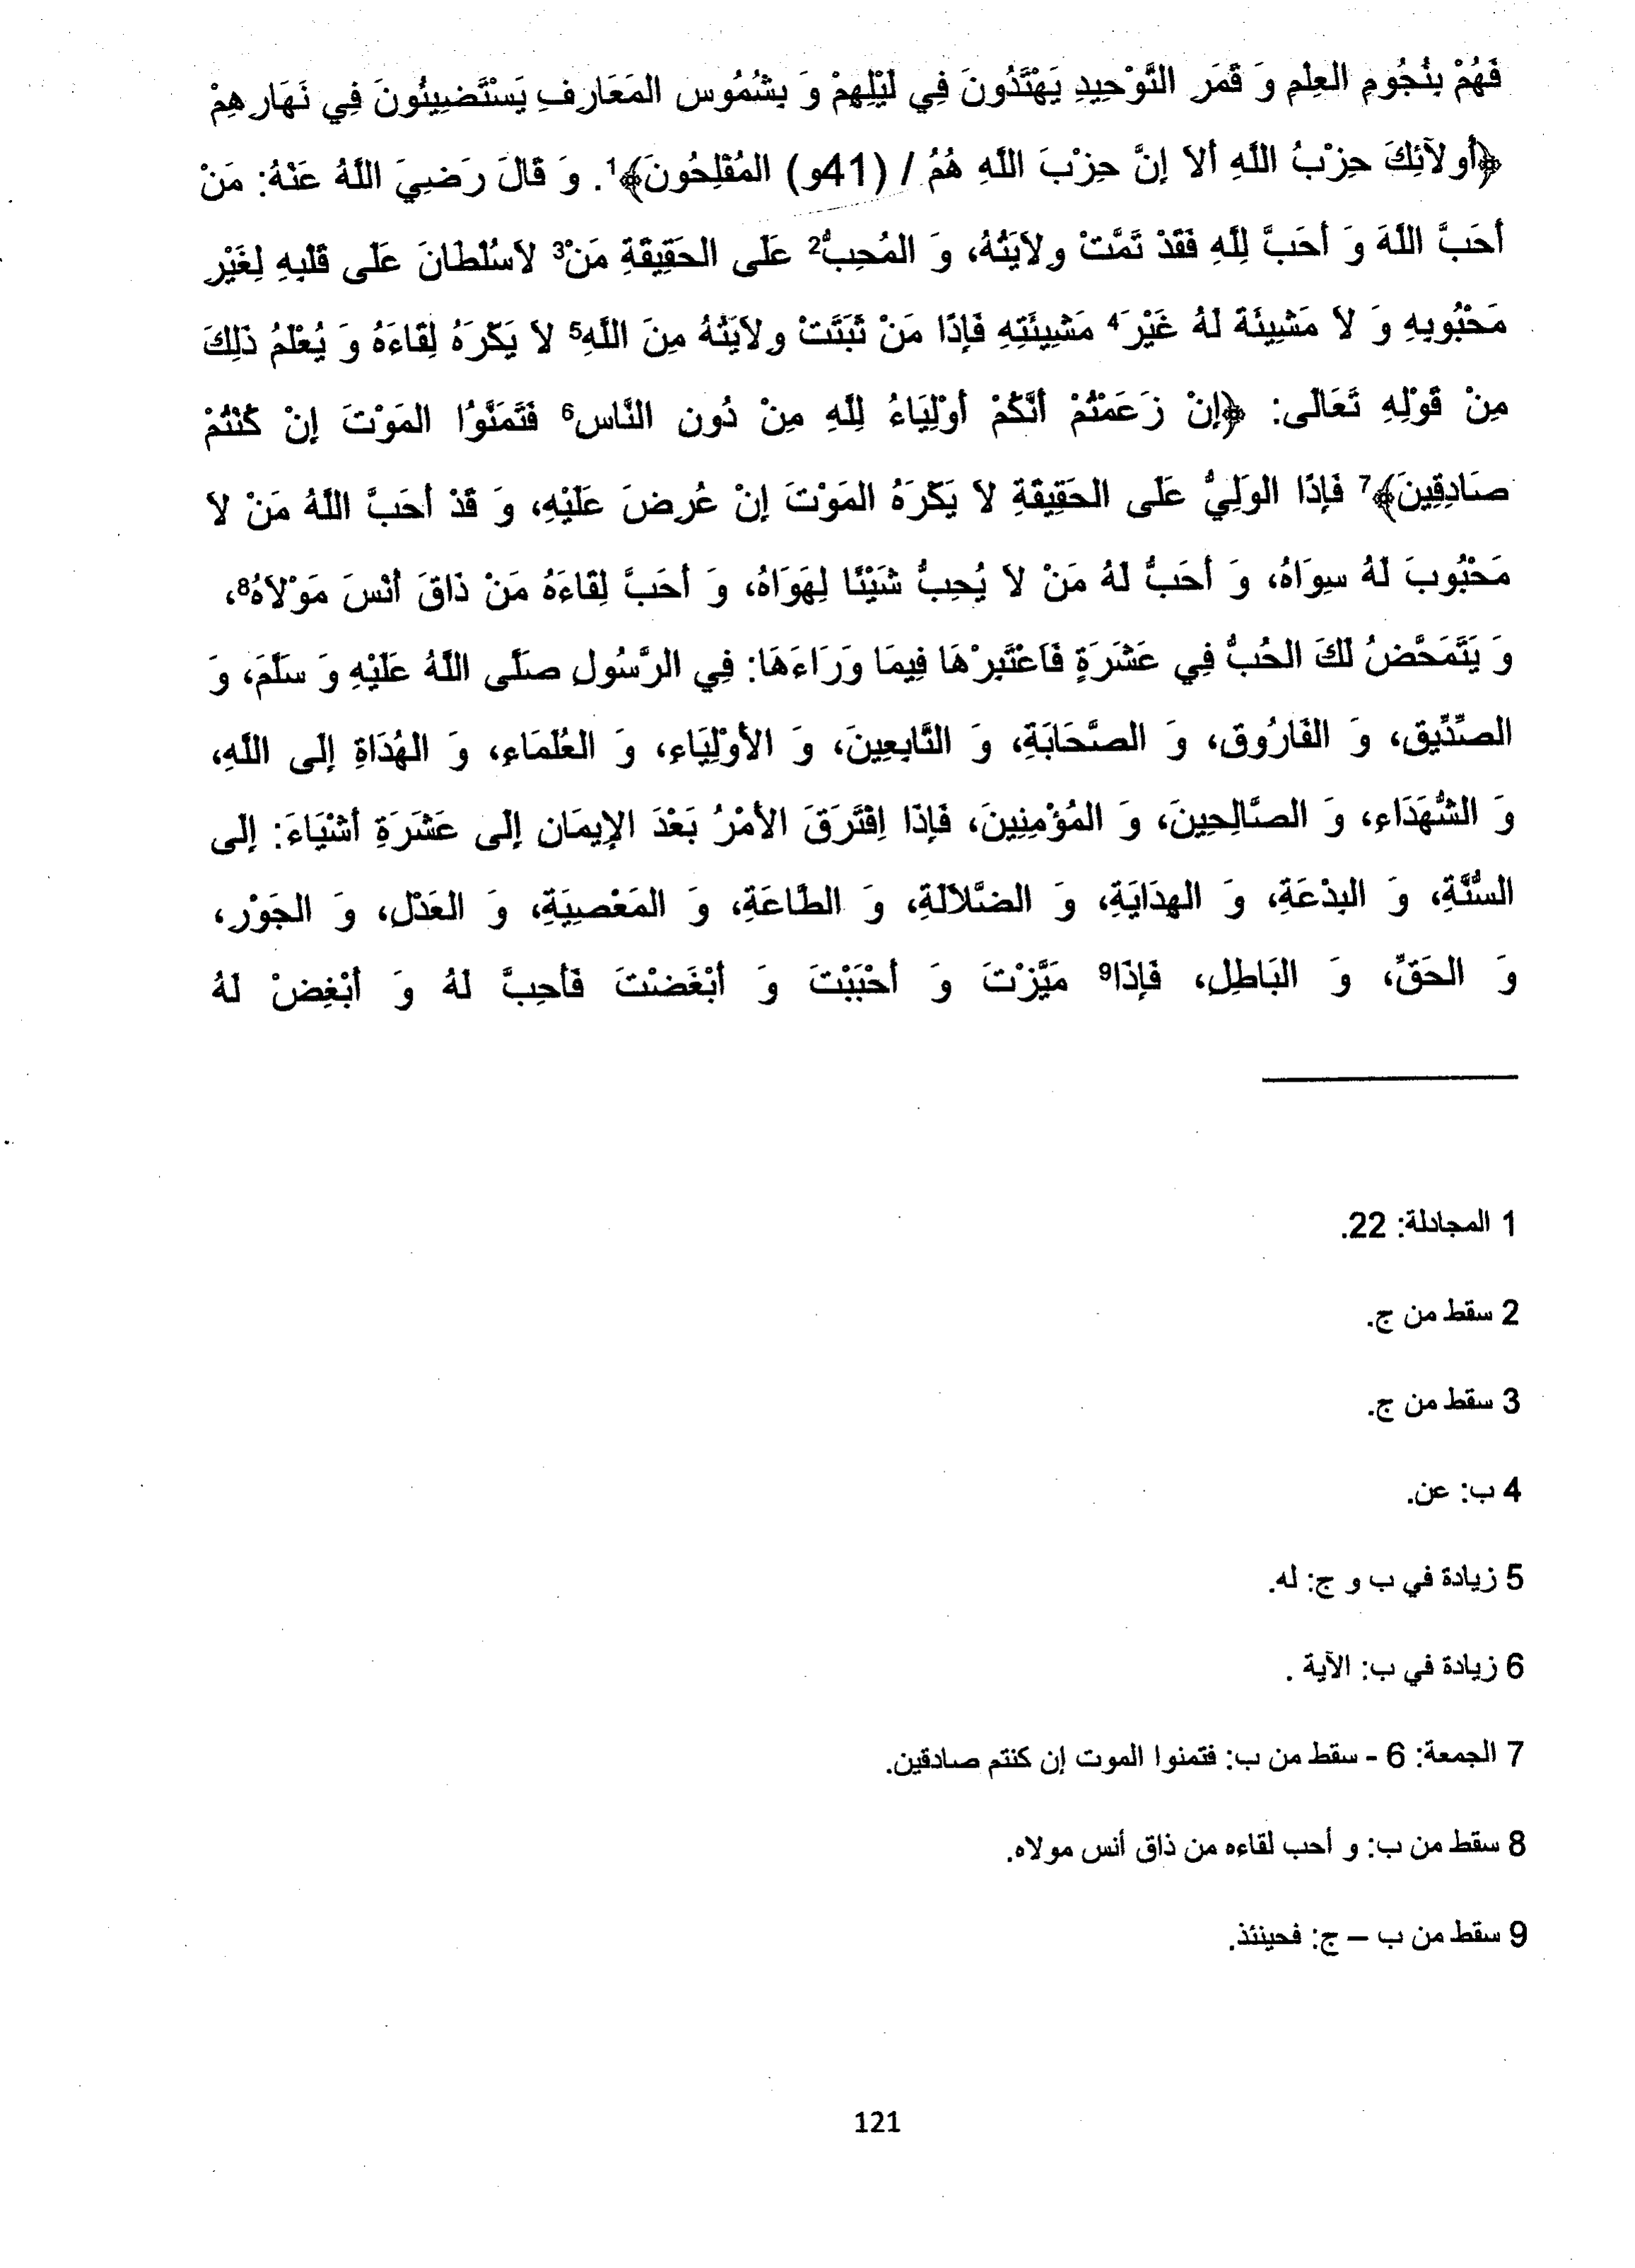 فَهُمْ بِنُجُومِ العِلمِ وَ قَمَرِ التَّوْحِيدِ يَهْتَدُونَ فِي لَيْلِهِمْ وَ بِشُمُوسِ المَعَارِفِ يَسْتَضِيئُونَ فِي نَهَارِهِمْ
﴿أولآئِكَ حِزْبُ اللَّهِ ألاَ إنَّ حِزْبَ اللَّهِ هُمُ / (41و) المُفْلِحُونَ﴾1. وَ قَالَ رَضِيَ اللَّهُ عَنْهُ: مَنْ
أحَبَّ اللَّهَ وَ أحَبَّ لِلَّهِ فَقَدْ تَمَّتْ وِلاَيَتُهُ، وَ المُحِبُّ2 عَلَى الحَقِيقَةِ مَنْ3 لاَسُلطَانَ عَلَى قَلبِهِ لِغَيْرِ
مَحْبُوبِهِ وَ لاَ مَشِيئَة لَهُ غَيْرَ4 مَشِيئَتِهِ فَإذًا مَنْ ثَبَتَتْ وِلاَيَتُهُ مِنَ اللَّهِ5 لاَ يَكْرَهُ لِقَاءَهُ وَ يُعْلَمُ ذَلِكَ
مِنْ قَوْلِهِ تَعَالَى: ﴿إنْ زَعَمْتُمْ أنَّكُمْ أوْلِيَاءُ لِلَّهِ مِنْ دُونِ النَّاسِ6 فَتَمَنَّوُا المَوْتَ إنْ كُنْتُمْ
صَادِقِينَ﴾7 فَإذًا الوَلِيُّ عَلَى الحَقِيقَةِ لاَ يَكْرَهُ المَوْتَ إنْ عُرِضَ عَلَيْهِ، وَ قَدْ أحَبَّ اللَّهُ مَنْ لاَ
مَحْبُوبَ لَهُ سِوَاهُ، وَ أحَبُّ لَهُ مَنْ لاَ يُحِبُّ شَيْئًا لِهَوَاهُ، وَ أحَبَّ لِقَاءَهُ مَنْ ذَاقَ أنْسَ مَوْلاَهُ8،
وَ يَتَمَحَّضُ لَكَ الحُبُّ فِي عَشَرَةٍ فَاعْتَبِرْهَا فِيمَا وَرَاءَهَا: فِي الرَّسُولِ صَلَّى اللَّهُ عَلَيْهِ وَ سَلَّمَ، وَ
الصِّدِّيقِ، وَ الفَارُوقِ، وَ الصَّحَابَةِ، وَ التَّابِعِينَ، وَ الأوْلِيَاءِ، وَ العُلَمَاءِ، وَ الهُدَاةِ إلَى اللَّهِ،
وَ الشُّهَدَاءِ، وَ الصَّالِحِينَ، وَ المُؤْمِنِينَ، فَإذَا اِفْتَرَقَ الأمْرُ بَعْدَ الإيمَانِ إلَى عَشَرَةِ أشْيَاءَ: إلَى
السُّنَّةِ، وَ البِدْعَةِ، وَ الهِدَايَةِ، وَ الضَّلاَلَةِ، وَ الطَّاعَةِ، وَ المَعْصِيَةِ، وَ العَدْلِ، وَ الجَوْرِ،
وَ الحَقِّ، وَ البَاطِلِ، فَإذَا9 مَيَّزْتَ وَ أحْبَبْتَ وَ أبْغَضْتَ فَأحِبَّ لَهُ وَ أبْغِضْ لَهُ
1 المجادلة: 22.
2 سقط من ج.
3 سقط من ج.
4 ب: عن.
5 زيادة في ب و ج: له.
6 زيادة في ب: الآية .
7 الجمعة: 6 - سقط من ب: فتمنوا الموت إن كنتم صادقين.
8 سقط من ب: و أحب لقاءه من ذاق أنس مولاه.
9 سقط من ب – ج: فحينئذ.
121